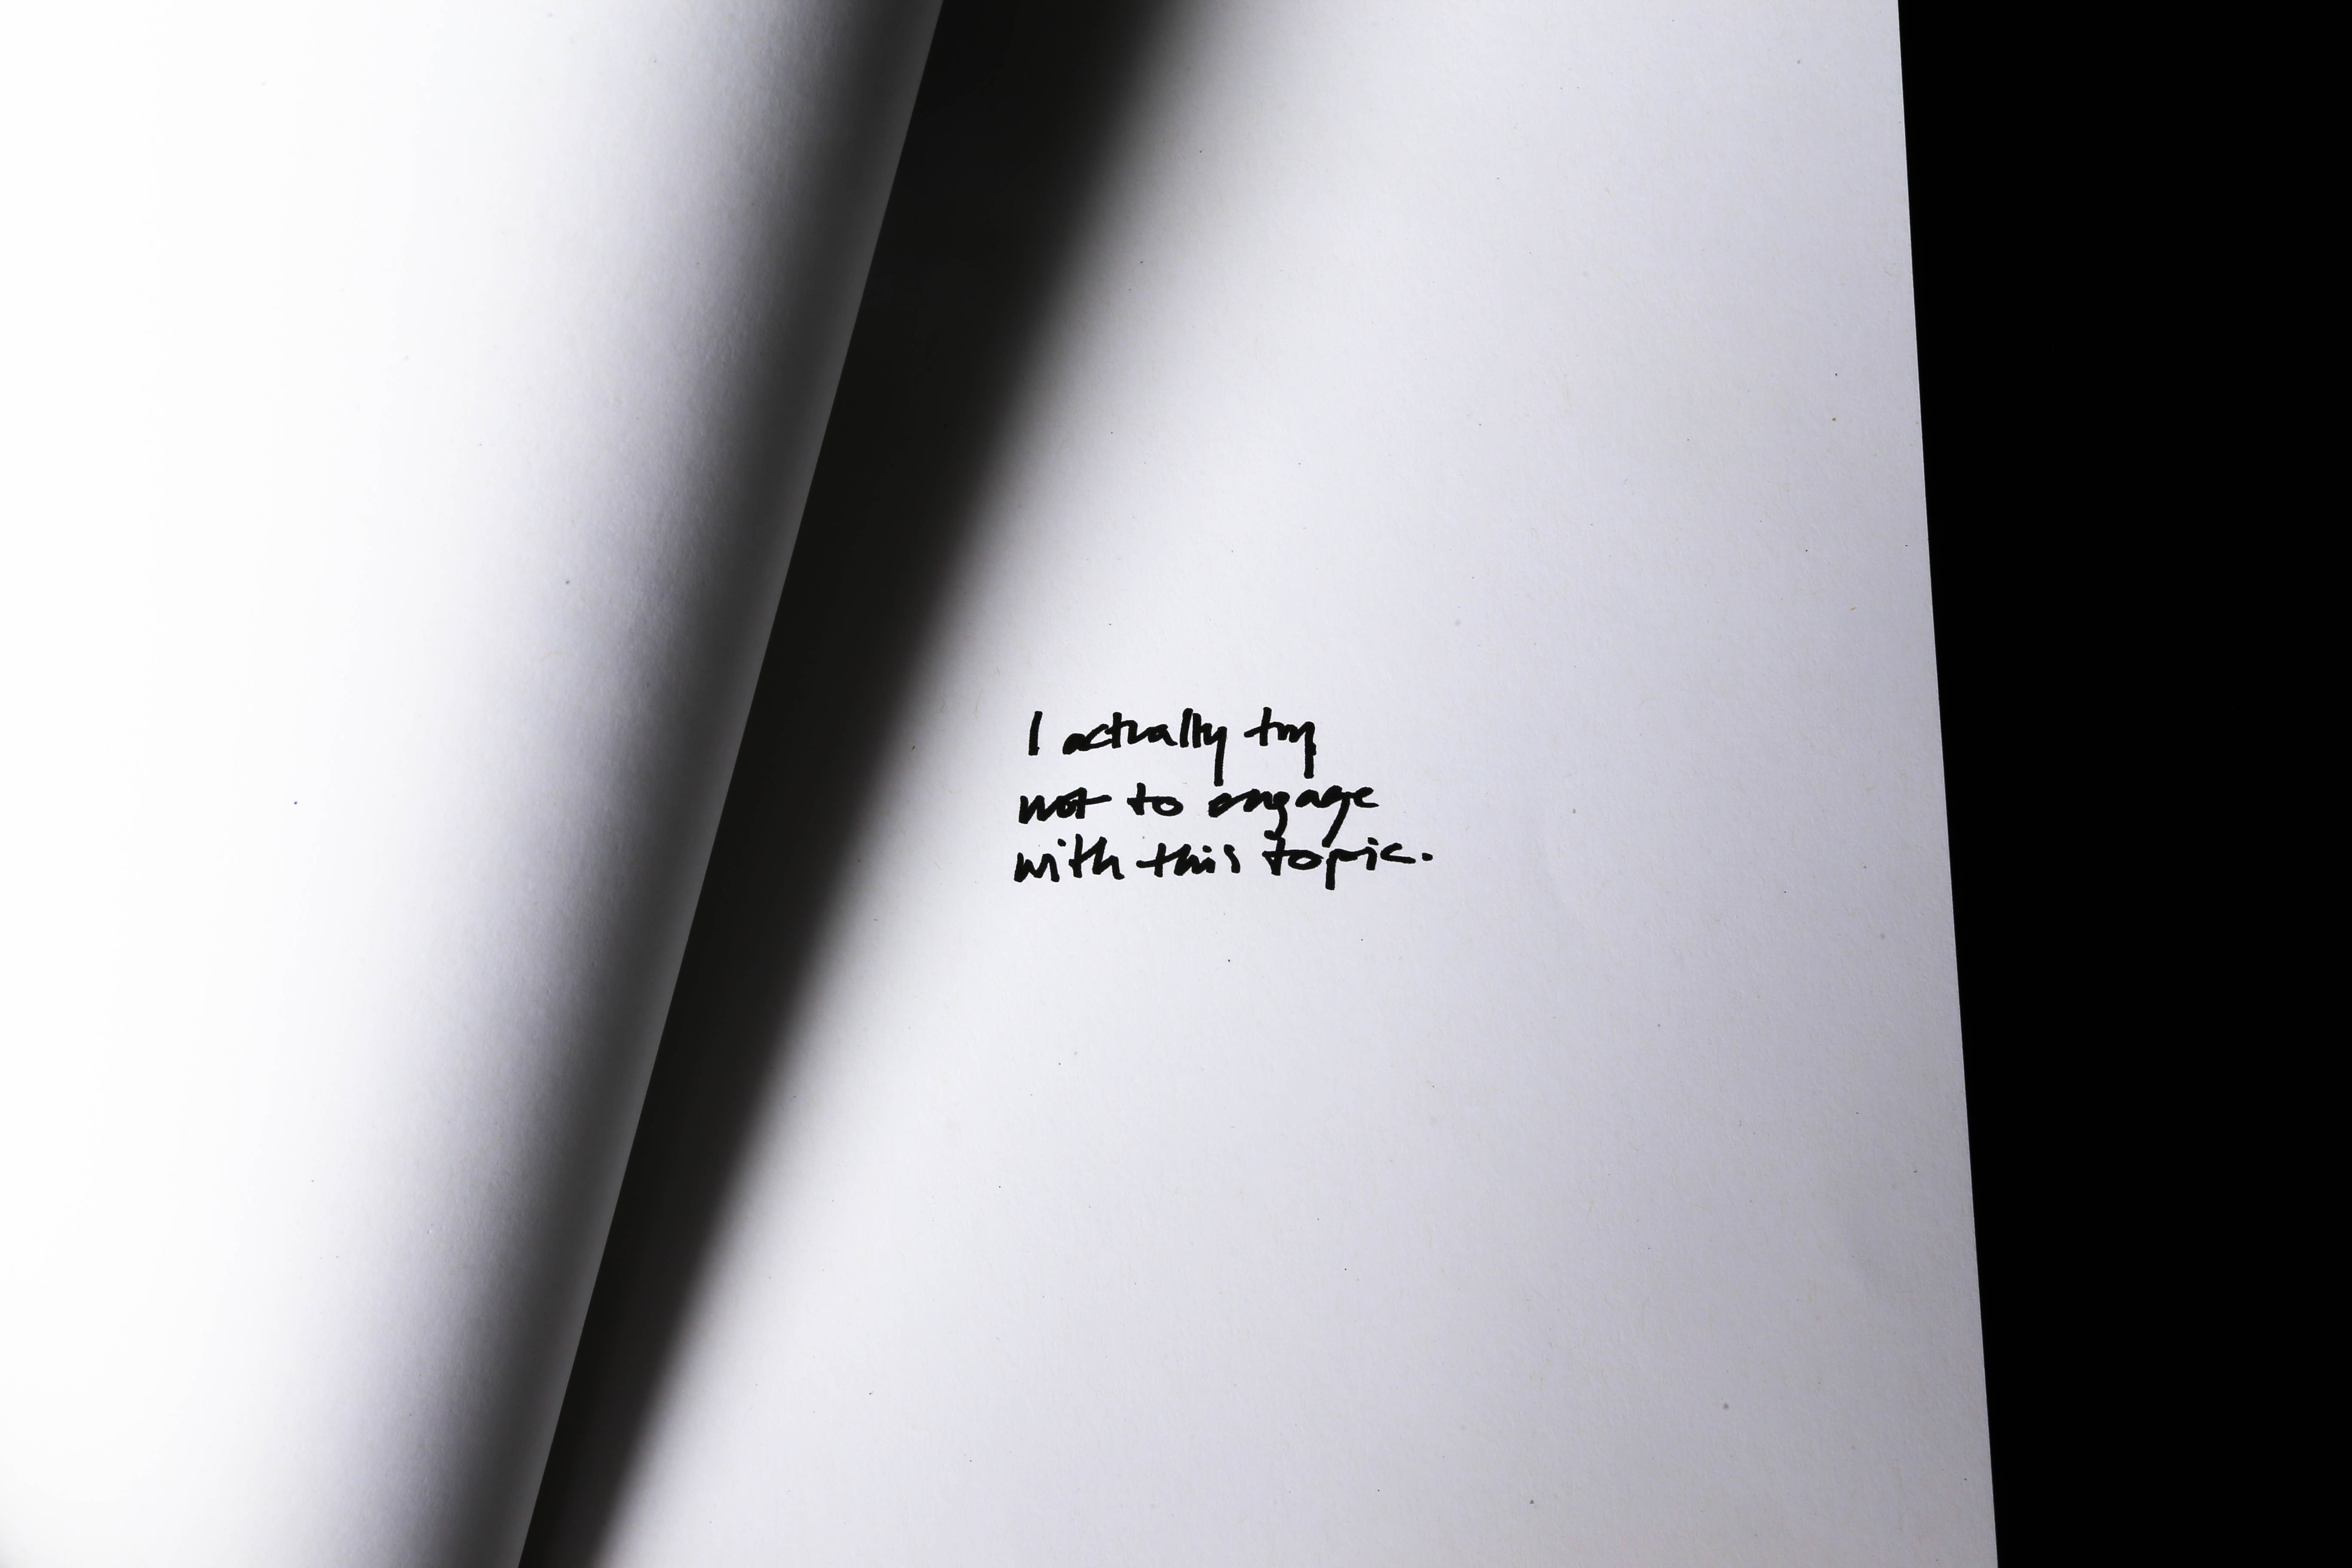 I actually try
not to engage
with this topic.